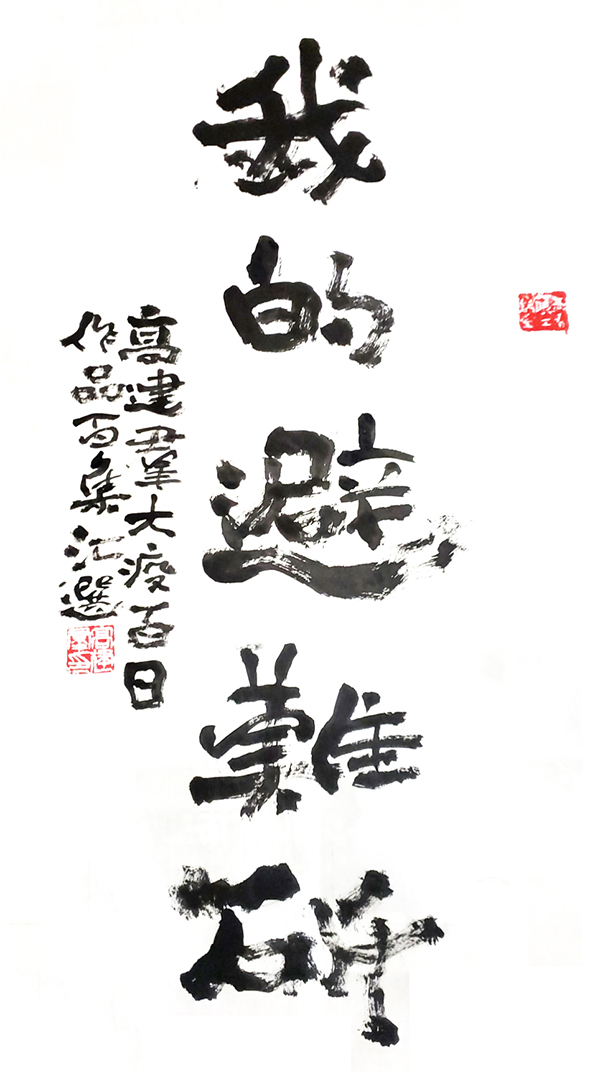 我的避難所
高建羣大疫百日
作品百集汇選